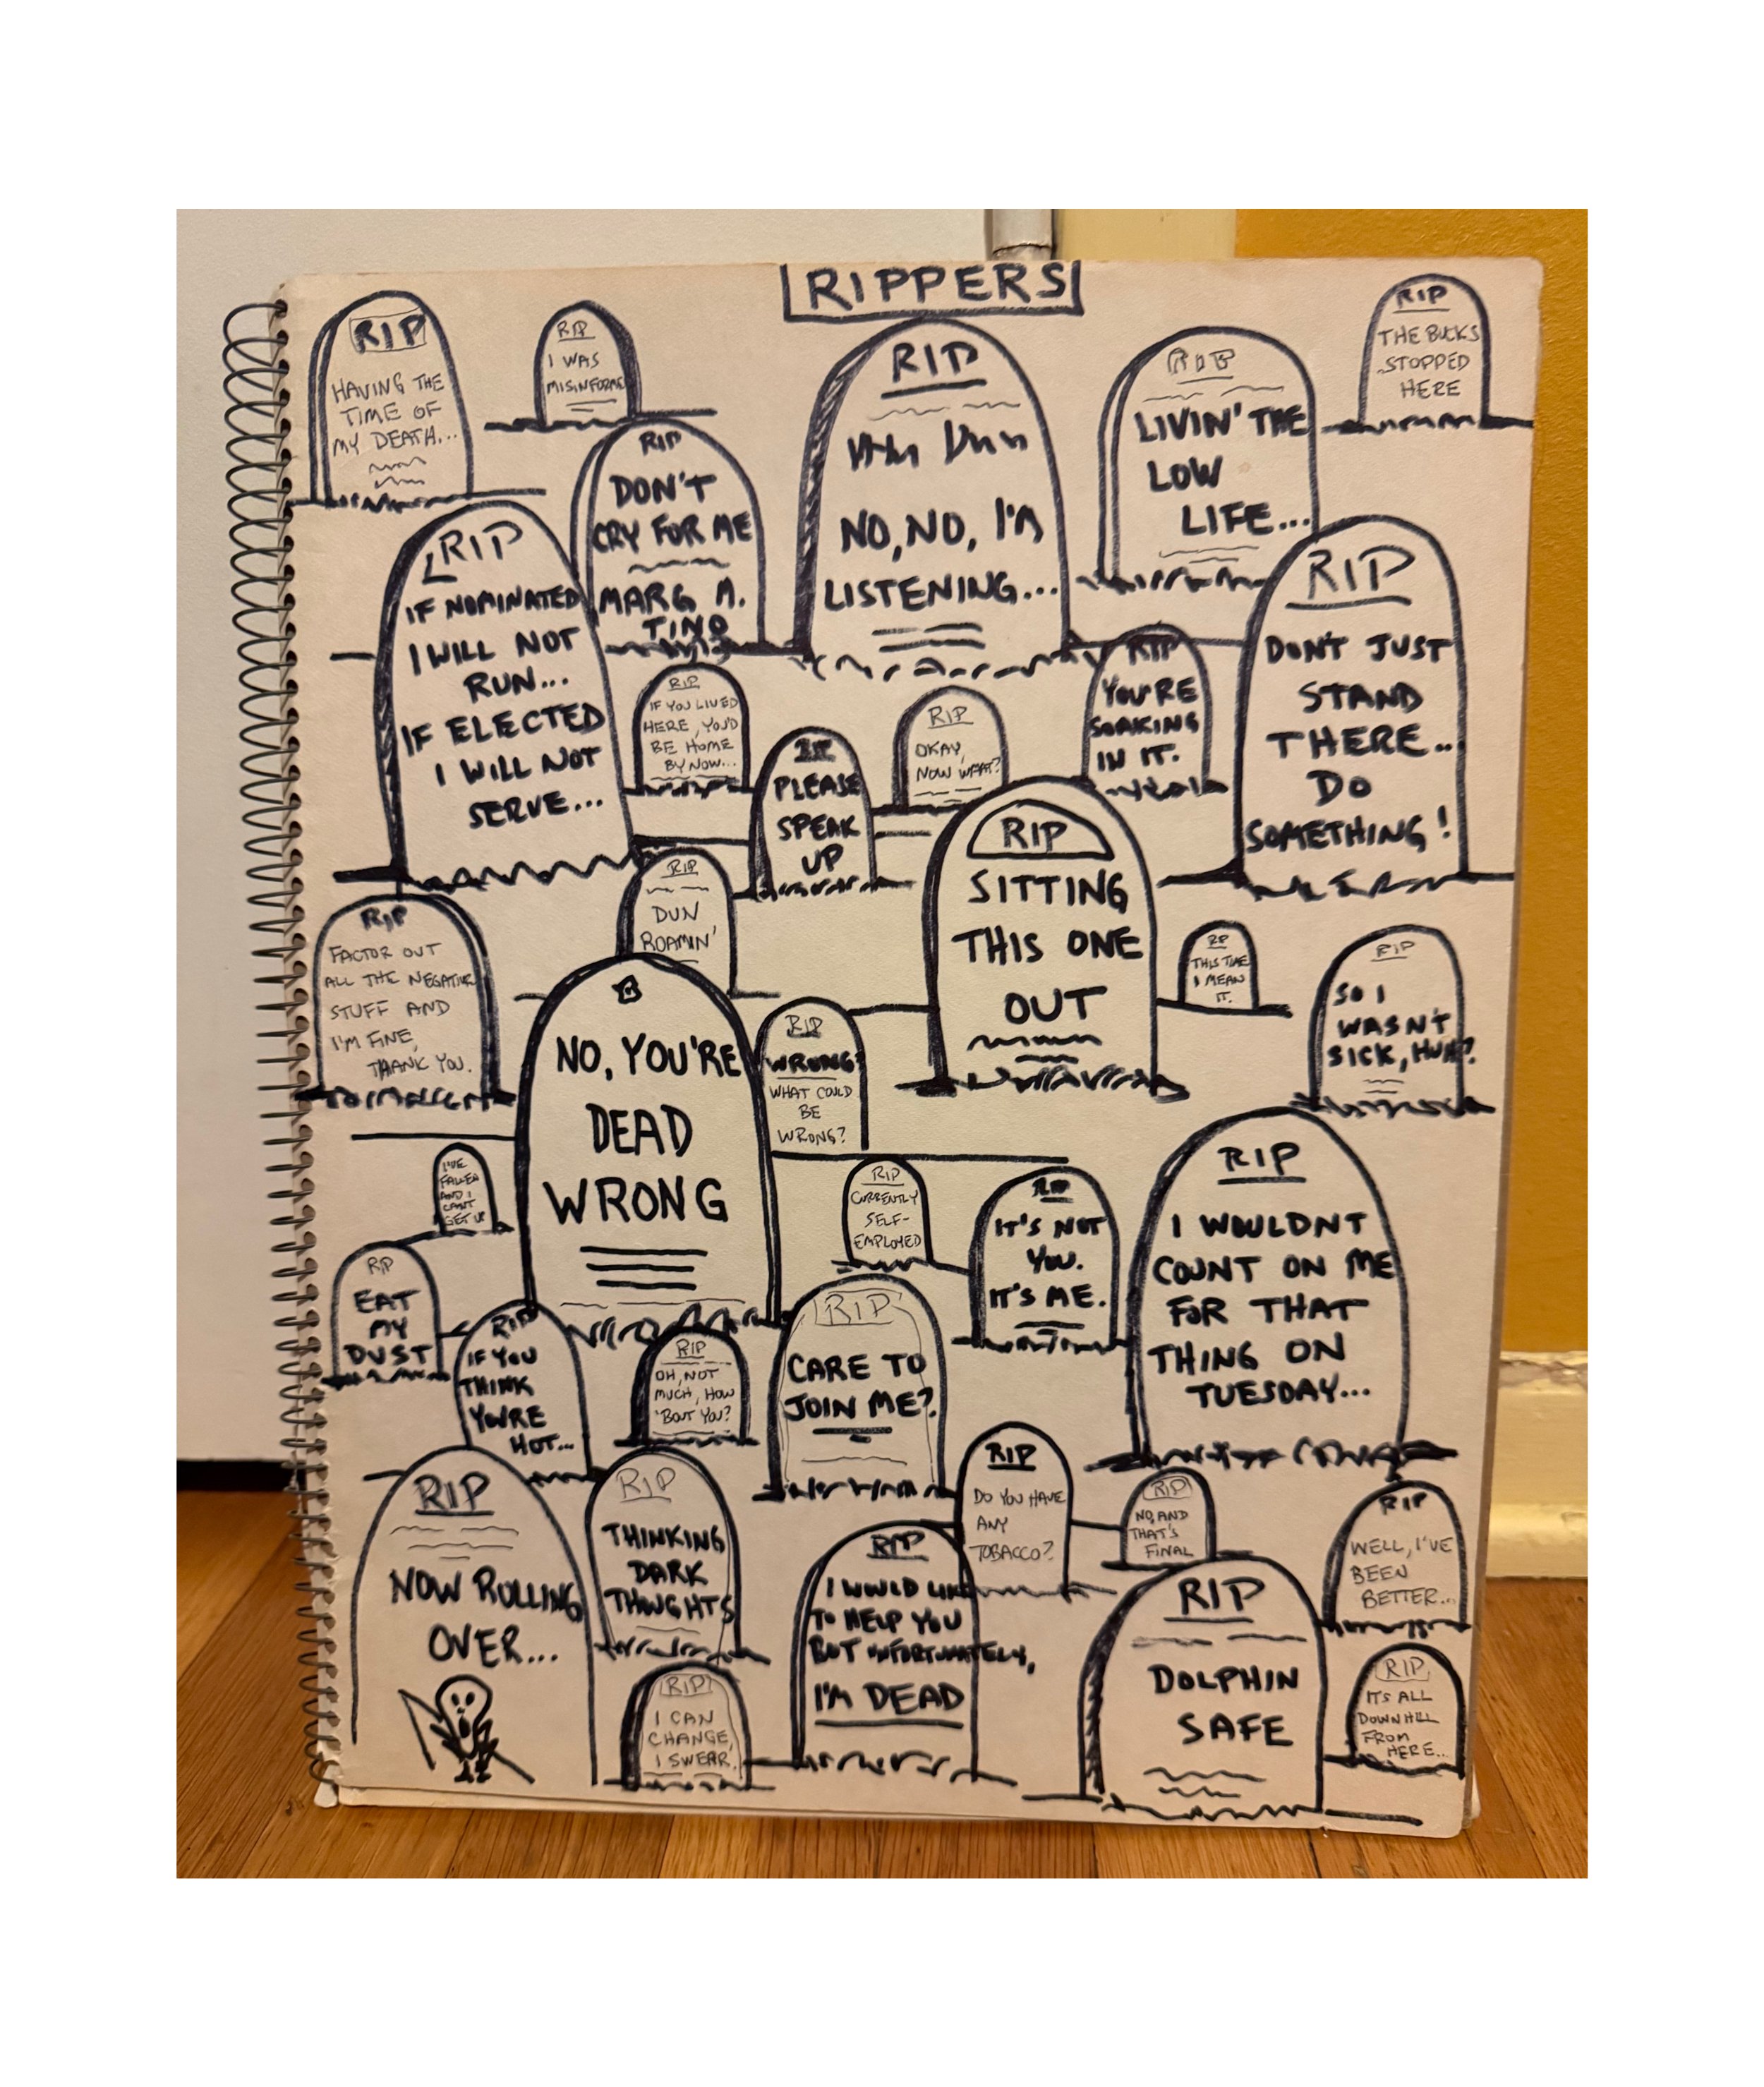 RIPPERS
RIP
HAVING THE
TIME OF
MY DEATH...
RIP
I WAS
MISINFORMED
RIP
NO, NO, I'M
LISTENING...
RIP
LIVIN' THE
LOW
LIFE...
RIP
THE BUCKS
STOPPED
HERE
RIP
DON'T
CRY FOR ME
MARG A.
TINO
RIP
IF NOMINATED
I WILL NOT
RUN...
IF ELECTED
I WILL NOT
SERVE...
RIP
DON'T JUST
STAND
THERE...
DO
SOMETHING!
RIP
IF YOU LIVED
HERE, YOU'D
BE HOME
BY NOW...
RIP
YOU'RE
SOAKING
IN IT.
RIP
OKAY,
NOW WHAT?
RIP
PLEASE
SPEAK
UP
RIP
SITTING
THIS ONE
OUT
RIP
DUN
ROAMIN'
RIP
FACTOR OUT
ALL THE NEGATIVE
STUFF AND
I'M FINE,
THANK YOU.
RIP
THIS TIME
I MEAN
IT.
RIP
SO I
WASN'T
SICK, HUH?
NO, YOU'RE
DEAD
WRONG
RIP
WRONG?
WHAT COULD
BE
WRONG?
I'VE
FALLEN
AND I
CAN'T
GET UP
RIP
CURRENTLY
SELF-
EMPLOYED
RIP
IT'S NOT
YOU.
IT'S ME.
RIP
I WOULDNT
COUNT ON ME
FOR THAT
THING ON
TUESDAY...
RIP
EAT
MY
DUST
RIP
IF YOU
THINK
YOU'RE
HOT...
RIP
OH, NOT
MUCH, HOW
'BOUT YOU?
RIP
CARE TO
JOIN ME?
RIP
DO YOU HAVE
ANY
TOBACCO?
RIP
NO, AND
THAT'S
FINAL
RIP
WELL, I'VE
BEEN
BETTER...
RIP
NOW ROLLING
OVER...
RIP
THINKING
DARK
THOUGHTS
RIP
I WOULD LIKE
TO HELP YOU
BUT UNFORTUNATELY,
I'M DEAD
RIP
DOLPHIN
SAFE
RIP
I CAN
CHANGE,
I SWEAR.
RIP
ITS ALL
DOWNHILL
FROM
HERE...